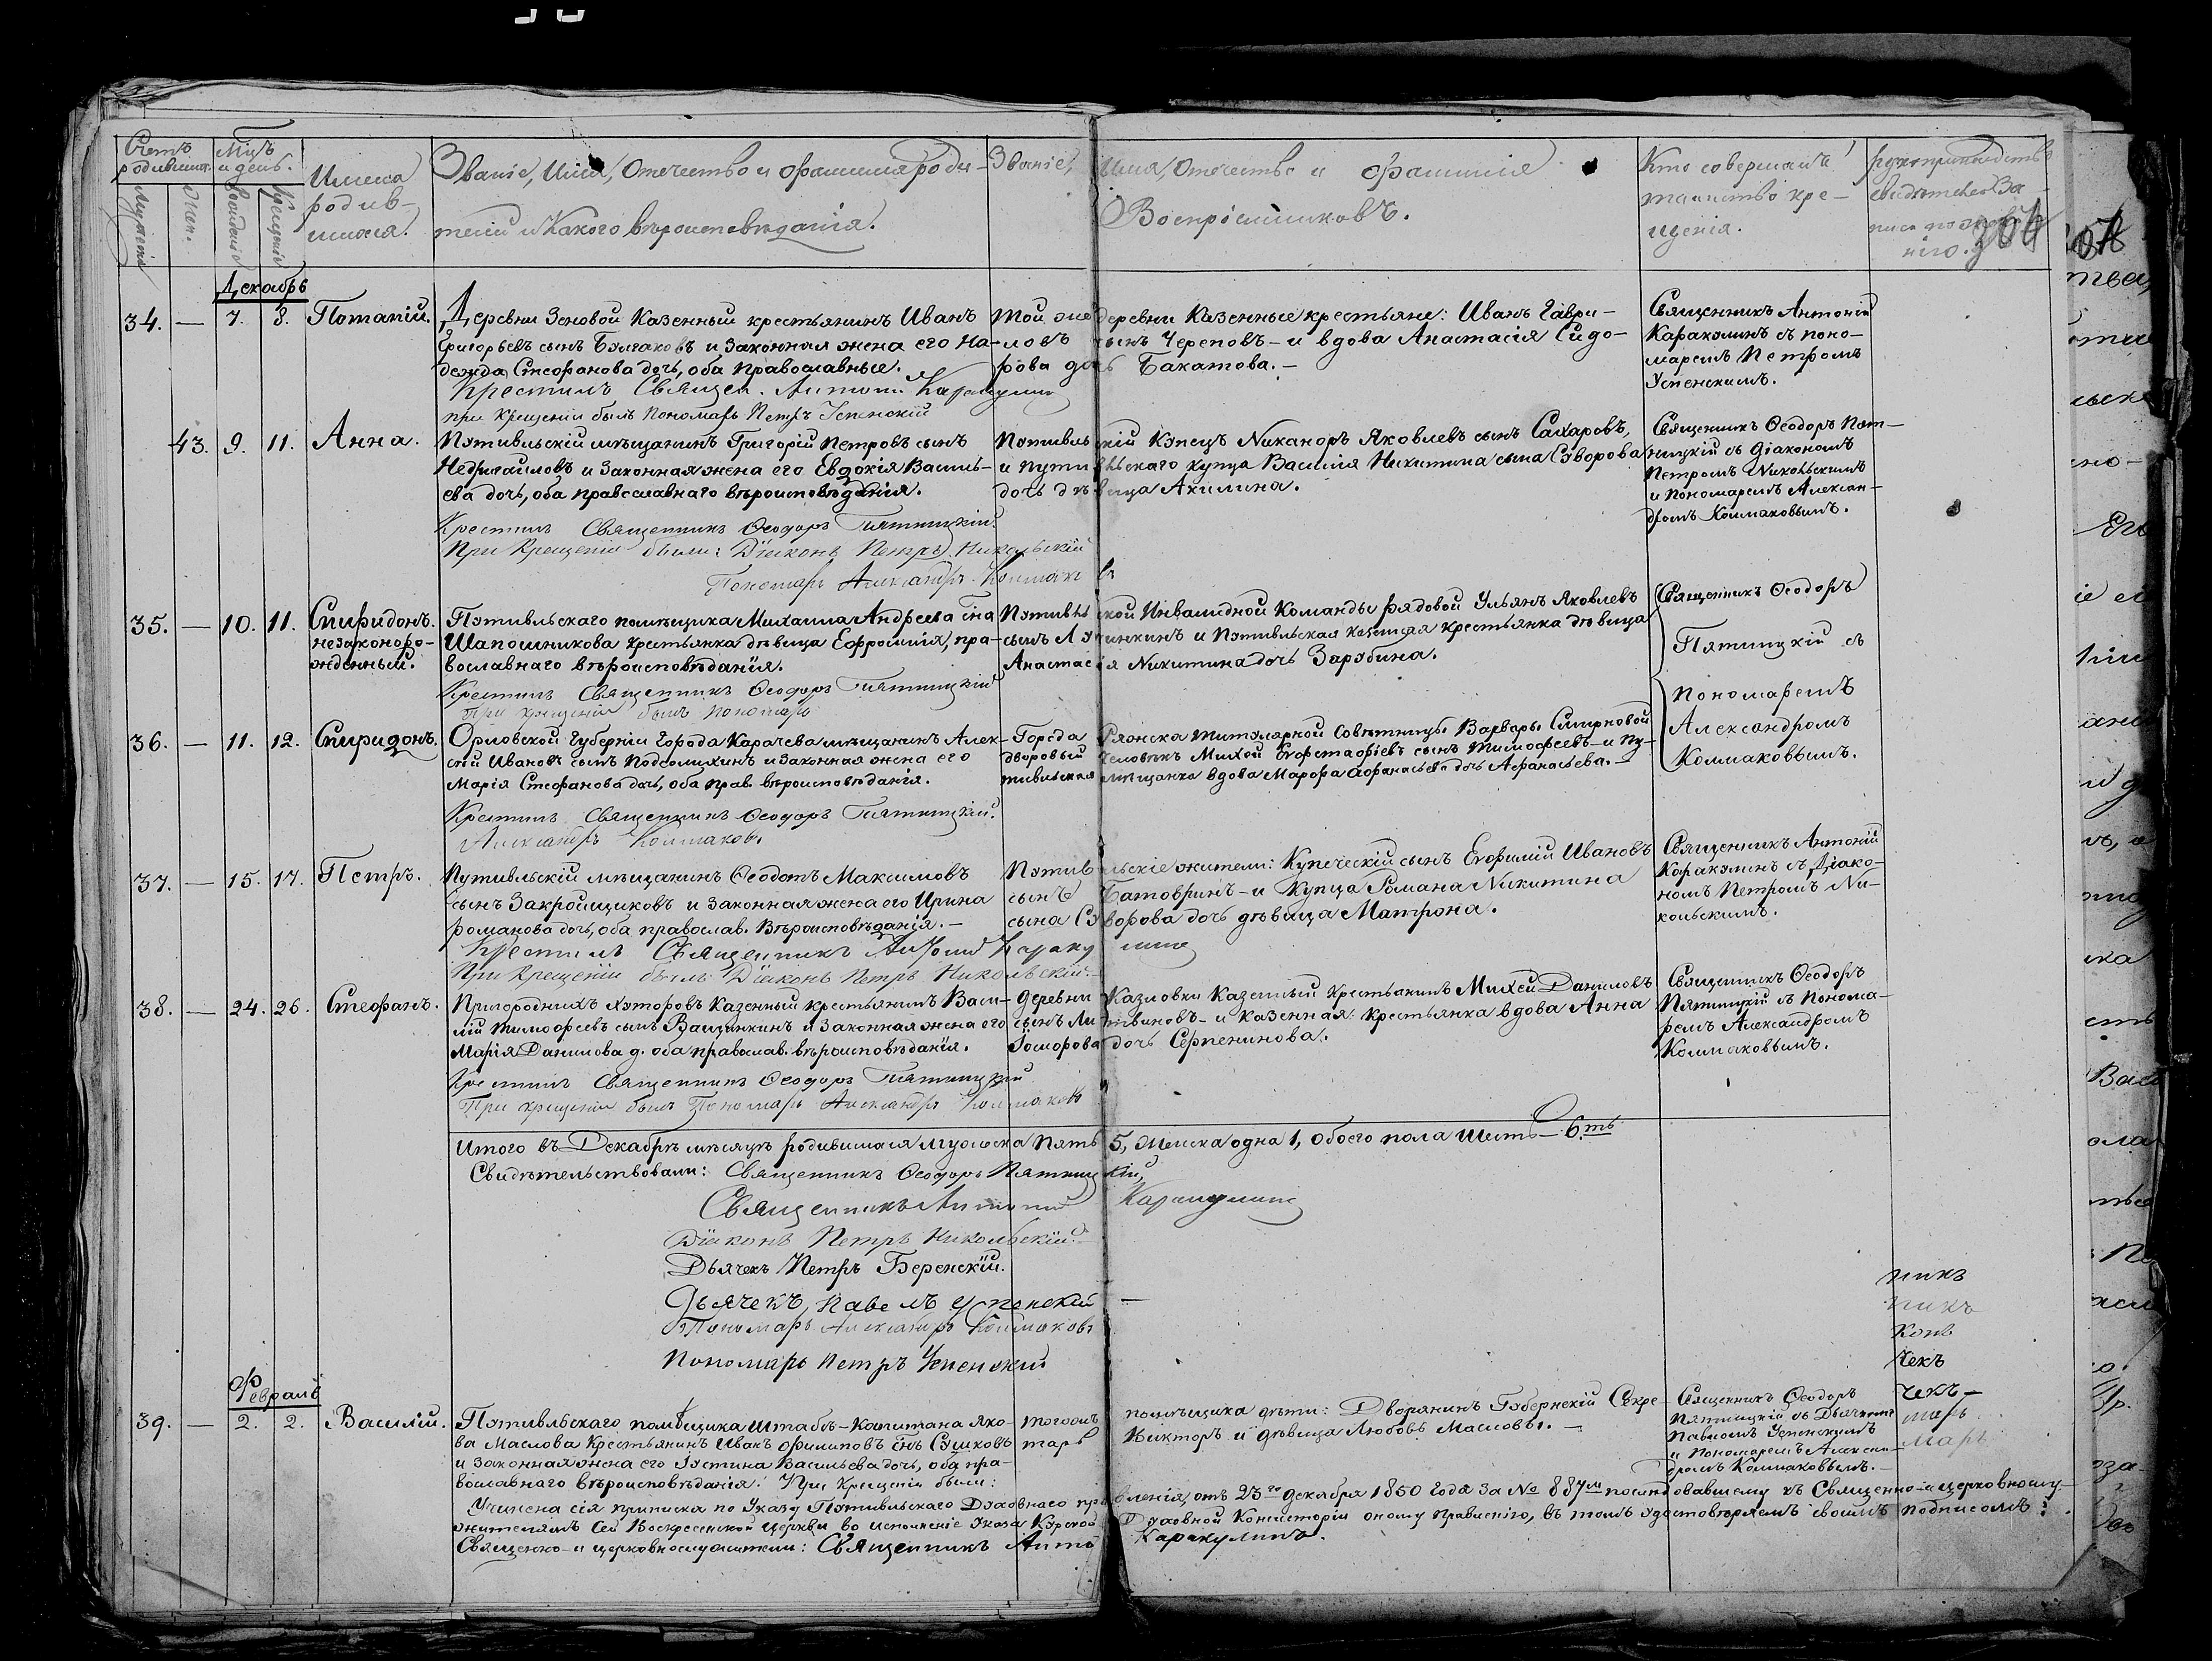 Счетъ родившихся.
Мужеска
Женск.
Мцъ и день.
Рожденія
Крещенія
Имена родив-
шихся.
Званіе, Имя, Отечество и Фамилія роди-
телей и какого вѣроисповѣданія.
Званіе, Имя, Отечество и Фамилія
Воспріемниковъ.
Кто совершалъ
таинство кре-
щенія.
304
Декабрь
34. — 7. 8. Потапій.
Деревни Зеновой Казенный крестьянинъ Иванъ
Григорьевъ сынъ Булгаковъ и законная жена его На-
дежда Стефанова дочь, оба православные.
Той же деревни Казенные крестьяне: Иванъ Гаври-
ловъ сынъ Череповъ – и вдова Анастасія Сидо-
рова дочь Бакатова. –
Священникъ Антоній
Каракулинъ съ поно-
маремъ Петромъ
Успенскимъ.
Крестилъ Священ. Антоній Каракулинъ
при крещеніи былъ Пономарь Петръ Успенскій
43. 9. 11. Анна.
Путивльскій мѣщанинъ Григорій Петровъ сынъ
Недригайловъ и законная жена его Евдокія Василь-
ева дочь, оба православнаго вѣроисповѣданія.
Путивльскій Купецъ Никаноръ Яковлевъ сынъ Сахаровъ,
и путивльскаго купца Василія Никитина сына Суворова
дочь дѣвица Акилина.
Священникъ Ѳеодоръ Пят-
ницкій съ діакономъ
Петромъ Никольскимъ
и Пономаремъ Алексан-
дромъ Колмаковымъ.
Крестилъ Священникъ Ѳеодоръ Пятницкій.
При крещеніи были: Діаконъ Петръ Никольскій
Пономарь Александръ Колмаковъ
35. — 10. 11. Спиридонъ.
незаконоро-
жденный.
Путивльскаго помѣщика Михаила Андреева сна
Шапошникова крестьянка дѣвица Ефросинія, пра-
вославнаго вѣроисповѣданія.
Путивльской Инвалидной Команды рядовой Ульянъ Яковлевъ
сынъ Лучинкинъ и Путивльская казенная крестьянка дѣвица
Анастасія Никитина дочь Зарубина.
Священникъ Ѳеодоръ
Пятницкій съ
Пономаремъ
Александромъ
Колмаковымъ.
Крестилъ Священникъ Ѳеодоръ Пятницкій
При крещеніи былъ Пономарь
36. — 11. 12. Спиридонъ.
Орловской Губерніи Города Карачева мѣщанинъ Алек-
сѣй Ивановъ сынъ Подсолихинъ и законная жена его
Марія Стефанова дочь, оба прав. вѣроисповѣданія.
Города Ряжска титулярной Совѣтницы Варвары Смирновой
дворовый человѣкъ Михей Евстафіевъ сынъ Тимофеевъ – и Пу-
тивльская мѣщанка вдова Марфа Афанасьева дочь Афанасьева. –
Крестилъ Священникъ Ѳеодоръ Пятницкій.
Александръ Колмаковъ.
37. — 15. 17. Петръ.
Путивльскій мѣщанинъ Ѳеодотъ Максимовъ
сынъ Закройщиковъ и законная жена его Ирина
Романова дочь, оба православ. вѣроисповѣданія. –
Путивльскіе жители: Купеческій сынъ Евфимій Ивановъ
сынъ Батовринъ – и Купца Романа Никитина
сына Суворова дочь дѣвица Матрона.
Священникъ Антоній
Каракулинъ съ Діако-
номъ Петромъ Ни-
кольскимъ.
Крестилъ Священникъ Антоній Каракулинъ
При крещеніи былъ Діаконъ Петръ Никольскій.
38. — 24. 26. Стефанъ.
Пригородныхъ хуторовъ Казенный крестьянинъ Васи-
лій Тимофеевъ сынъ Ващенкинъ и законная жена его
Марія Данилова д. оба православ. вѣроисповѣданія.
Деревни Казловки Казенный крестьянинъ Михей Даниловъ
сынъ Литвиновъ – и казенная крестьянка вдова Анна
дочь Серпенинова.
Священникъ Ѳеодоръ
Пятницкій съ Понома-
ремъ Александромъ
Колмаковымъ.
Крестилъ Священникъ Ѳеодоръ Пятницкій
При крещеніи былъ Пономарь Александръ Колмаковъ
Итого въ Декабрѣ мѣсяцѣ родившихся мужеска пять 5, Женска одна 1, обоего пола шесть – 6.ть
Свидѣтельствовали: Священникъ Ѳеодоръ Пятницкій,
Священникъ Антоній Каракулинъ
Діаконъ Петръ Никольскій.
Дьячекъ Петръ Беренскій.
Дьячекъ, Павелъ Успенскій
Пономарь Александръ Колмаковъ
Пономарь Петръ Успенскій
никъ
никъ
конъ
чекъ
чекъ –
марь
марь
Февраль
39. — 2. 2. Василій.
Путивльскаго помѣщика Штабсъ-Капитана Яко-
ва Маслова Крестьянинъ Иванъ Филиповъ снъ Сушковъ
и законная жена его Іустина Васильева дочь, оба пра-
вославнаго вѣроисповѣданія. При крещеніи были:
тогожъ помѣщика дѣти: Дворянинъ Губернскій Секре-
тарь Викторъ и дѣвица Любовь Масловы. –
Священникъ Ѳеодоръ
Пятницкій съ Дьячкомъ
Павломъ Успенскимъ
и Пономаремъ Алексан-
дромъ Колмаковымъ. –
Учинена сія приписка по Указу Путивльскаго Духовнаго правленія, отъ 23го декабря 1850 года за № 887м послѣдовавшему къ Священно-и церковнослу-
жителямъ сей Воскресенской церкви во исполненіе Указа Курской Духовной Консисторіи оному правленію, въ томъ удостовѣряемъ своимъ подписомъ:
Священно- и церковнослужители: Священникъ Антоній Каракулинъ.